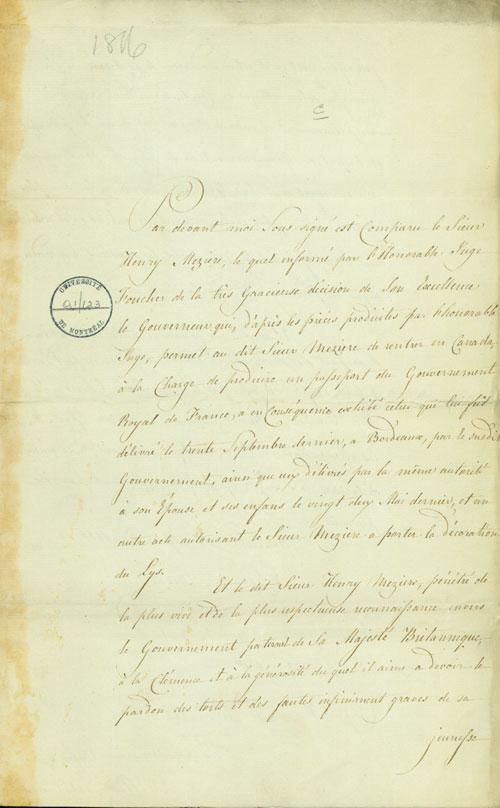 1816
C
Par devant moi Sous signé est Comparu le Sieur
Henry Meziere, le quel informé par l'Honorable Juge
Foucher de la très Gracieuse décision de Son Excellence
le Gouverneur qui, d'après les pièces produites par l'honorable
Juge, permet au dit Sieur Meziere de rentrer en Canada,
à la Charge de produire un passeport du Gouvernement
Royal de France, a en Conséquence exhibé celui qui lui fut
délivré le trente Septembre dernier, a Bordeaux, par le susdit
Gouvernement, ainsi que ceux délivrés par la même autorité
à son Épouse et ses enfans le vingt deux Mai dernier, et un
autre acte autorisant le Sieur Meziere a porter la décoration
du Lys.
Et le dit Sieur Henry Meziere, pénétré de
la plus vive et de la plus respectueuse reconnaissance envers
le Gouvernement paternel de Sa Majesté Britannique,
à la Clémence et à la générosité du quel il aime a devoir le
pardon des torts et des fautes infiniment graves de sa
jeunesse
UNIVERSITÉ
Q1/123
DE MONTRÉAL